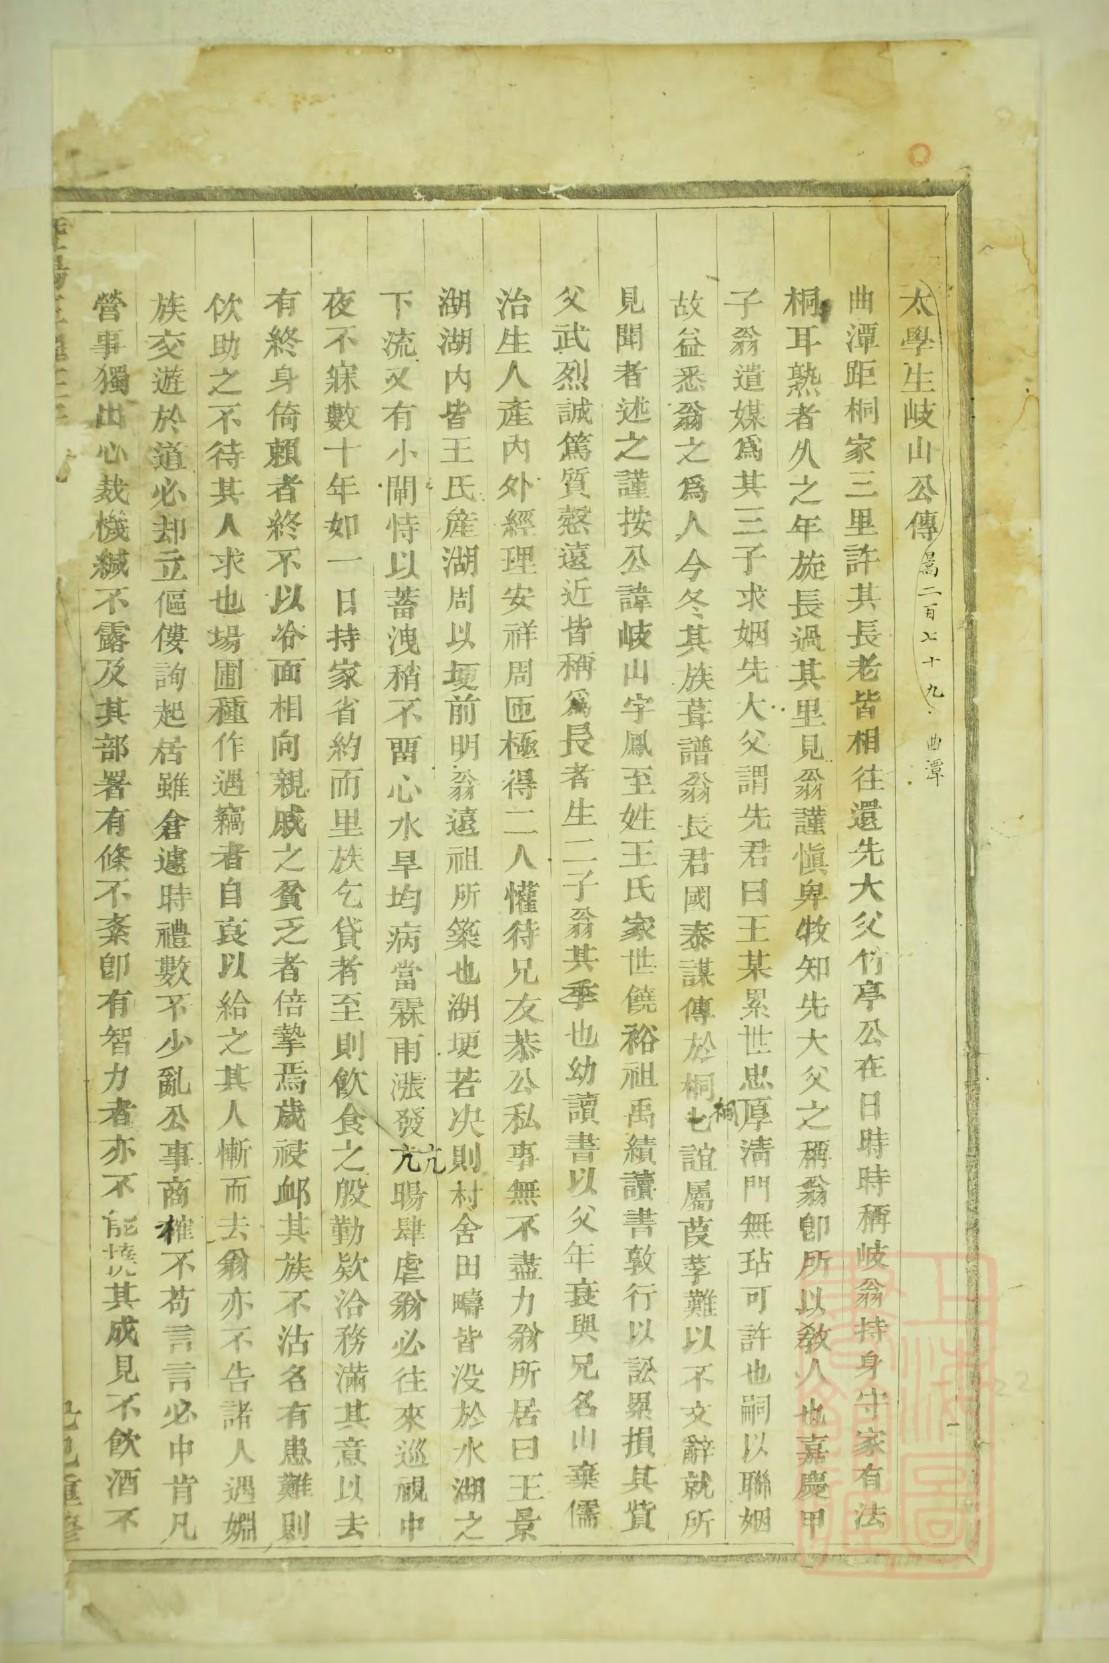 太學生岐山公傳 萬二百七十九 曲潭
曲潭距桐家三里許其長老皆相往還先大父竹亭公在日時時稱岐翁持身守家有法
桐耳熟者久之年旋長過其里見翁謹愼卑牧知先大父之稱翁卽所以敎人也嘉慶甲
子翁遣媒爲其三子求姻先大父謂先君曰王某累世忠厚淸門無玷可許也嗣以聯姻
故益悉翁之爲人今冬其族葺譜翁長君國泰謀傳於桐桐誼屬葭莩難以不文辭就所
見聞者述之謹按公諱岐山字鳳至姓王氏家世饒裕祖禹績讀書敦行以訟累損其貲
父武烈誠篤質慤遠近皆稱爲長者生二子翁其季也幼讀書以父年衰與兄名山棄儒
治生人產內外經理安祥周匝極得二人懽待兄友恭公私事無不盡力翁所居曰王景
湖湖內皆王氏產湖周以埂前明翁遠祖所築也湖埂若决則村舍田疇皆没於水湖之
下流又有小閘恃以蓄洩稍不畱心水旱均病當霖雨漲發亢暘肆虐翁必往來巡視中
夜不寐數十年如一日持家省約而里族乞貸者至則飮食之殷勤欵洽務滿其意以去
有終身倚賴者終不以冷面相向親戚之貧乏者倍摯焉歲祲卹其族不沽名有患難則
佽助之不待其人求也場圃種作遇竊者自哀以給之其人慚而去翁亦不告諸人遇婣
族交遊於道必却立傴僂詢起居雖倉遽時禮數不少亂公事商榷不苟言言必中肯凡
營事獨出心裁機緘不露及其部署有條不紊卽有智力者亦不能撓其成見不飮酒不